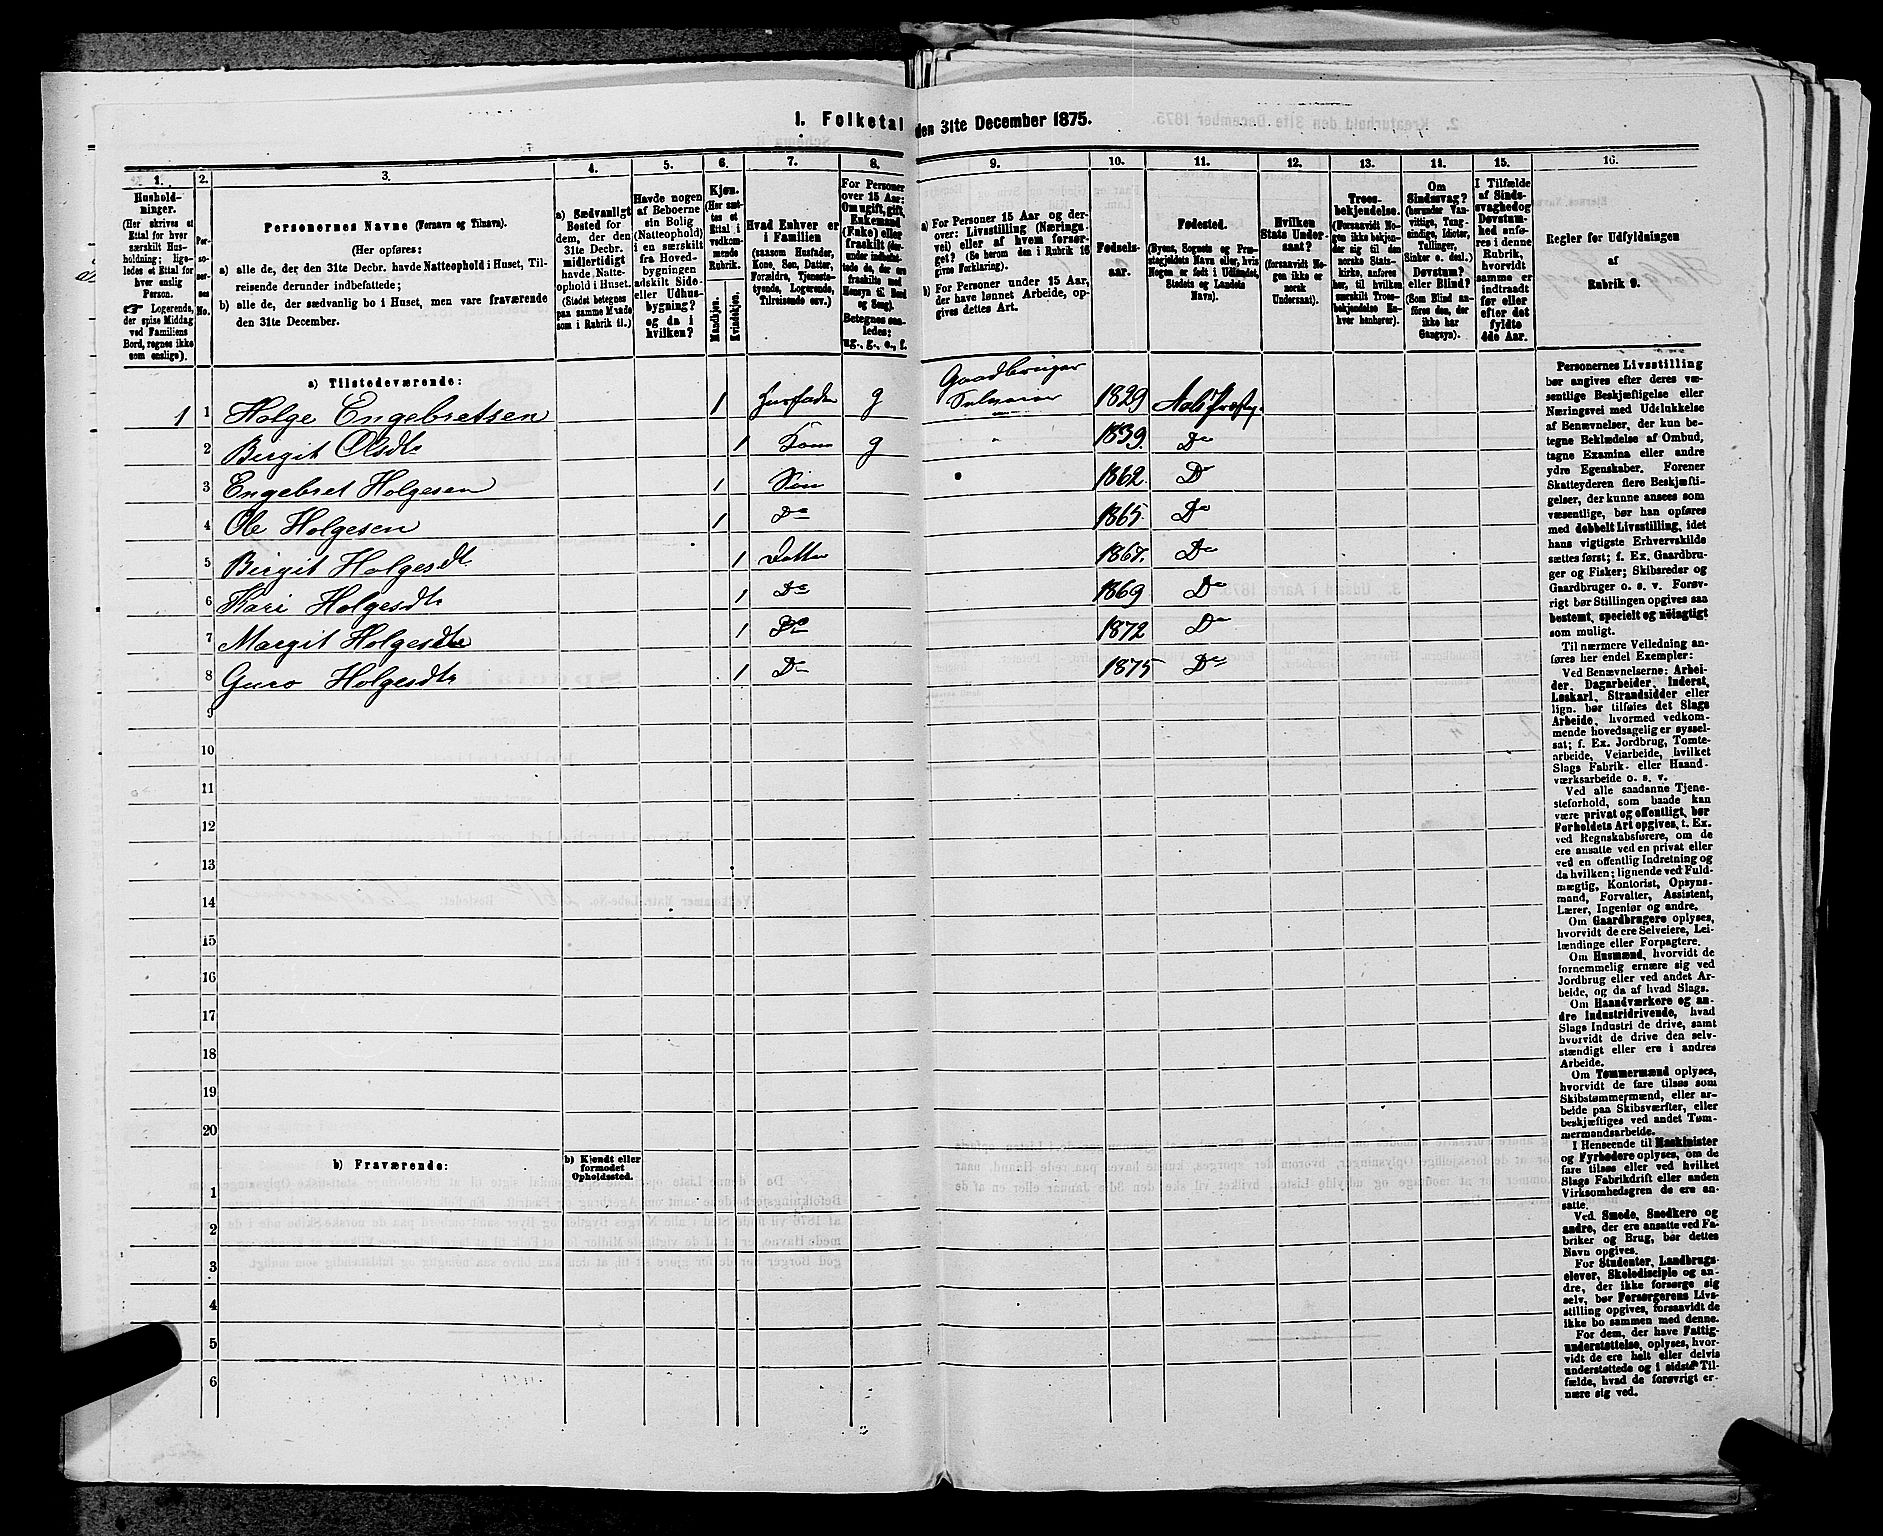 1. Folketal den 31te December 1875.
1.
Hushold-
ninger.
(Her skrives et
Ettal for hver
særskilt Hus-
holdning; lige-
ledes et Ettal for
hver enslig
Person.
Logerende,
der spise Middag
ved Familiens
Bord, regnes ikke
som enslige).
2.
Per-
so-
ner-
nes
No.
3.
Personernes Navne (Fornavn og Tilnavn).
(Her opføres:
a) alle de, der den 31te Decbr. havde Natteophold i Huset, Til-
reisende derunder indbefattede;
b) alle de, der sædvanlig bo i Huset, men vare fraværende
den 31te December.
4.
a) Sædvanligt
Bosted for
dem, der den
31te Decbr.
midlertidigt
havde Natte-
ophold i Huset.
(Stedet betegnes
paa samme Maade
som i Rubrik 11.)
5.
Havde nogen
af Beboerne
sin Bolig
(Natteophold)
i en særskilt
fra Hoved-
bygningen
adskilt Side-
eller Udhus-
bygning?
og da i
hvilken?
6.
Kjøn.
(Her sæt-
tes et
Ettal i
vedkom-
mende
Rubrik.
Mandkjøn.
Kvindekjøn.
7.
Hvad Enhver er
i Familien
(saasom Husfader,
Kone, Søn, Datter,
Forældre, Tjeneste-
tyende, Logerende,
Tilreisende osv.)
8.
For Personer
over 15 Aar:
Om ugift, gift,
Enkemand
(Enke) eller
fraskilt (der-
under indbefat-
tede de, der ere
fraskilte med
Hensyn til Bord
og Seng).
Betegnes saa-
ledes:
ug., g., e., f.
9.
a) For Personer 15 Aar og der-
over: Livsstilling (Nærings-
vei) eller af hvem forsør-
get? (Se herom den i Rubrik 16
givne Forklaring).
b) For Personer under 15 Aar,
der have lønnet Arbeide, op-
gives dettes Art.
10.
Fødsels-
aar.
11.
Fødested.
(Byens, Sognets og Præ-
stegjeldets Navn eller, hvis
Nogen er født i Udlandet,
Stedets og Landets
Navn).
12.
Hvilken
Stats Under-
saat?
(forsaavidt No-
gen ikke er
norsk
Undersaat).
13.
Troes-
bekjendelse.
(Forsaavidt No-
gen ikke bekjen-
der sig til den
norske Stats-
kirke, anføres
her, til hvilken
særskilt Troes-
bekjendelse En-
hver henhører).
14.
Om
Sindssvag?
(herunder Van-
vittige, Tung-
sindige, Idioter,
Tullinger,
Sinker o. desl.)
Døvstum?
eller Blind?
(Som Blind an-
føres den, der
ikke har
Gangsyn).
15.
I Tilfælde
af Sinds-
svaghed og
Døvstum-
hed anfø-
res i denne
Rubrik,
hvorvidt
samme er
indtraadt
før eller
efter det
fyldte
4de Aar.
16.
Regler for Udfyldningen
af
Rubrik 9.
a) Tilstedeværende:
1 1 Holge Engebretsen 1 Husfader g Gaardbruger Selveier 1829 Aals Præstg.
2 Birgit Olsdtr 1 Kone g " 1839. Do
3 Engebret Holgesen 1 Søn 1862. Do
4 Ole Holgesen 1 Do 1865. Do
5 Birgit Holgesdtr 1 Datter 1867. Do
6 Kari Holgesdtr 1 Do 1869 Do
7 Margit Holgesdtr 1 Do 1872 Do
8 Guro Holgesdtr 1 Do 1875 Do
9
10
11
12
13
14
15
16
17
18
19
20
b) Fraværende:
b) Kjendt eller
formodet
Opholdssted.
1
2
3
4
5
6
Personernes Livsstilling
bør angives efter deres væ-
sentlige Beskjæftigelse eller
Næringsvei med Udelukkelse
af Benævnelser, der kun be-
tegne Beklædelse af Ombud,
tagne Examina eller andre
ydre Egenskaber. Forener
Skatteyderen flere Beskjæfti-
gelser, der kunne ansees som
væsentlige, bør han opføres
med dobbelt Livsstilling, idet
hans vigtigste Erhvervskilde
sættes først; f. Ex. Gaardbru-
ger og Fisker; Skibsreder og
Gaardbruger o. s. v. Forøv-
rigt bør Stillingen opgives saa
bestemt, specielt og nöiagtigt
som muligt.
Til nærmere Veiledning an-
føres her endel Exempler:
Ved Benævnelserne: Arbei-
der, Dagarbeider, Inderst,
Løskarl, Strandsidder eller
lign. bør tilføies det Slags
Arbeide, hvormed vedkom-
mende hovedsagelig er syssel-
sat; f. Ex. Jordbrug, Tomte-
arbeide, Veiarbeide, hvilket
Slags Fabrik- eller Haand-
værksarbeide o. s. v.
Ved alle saadanne Tjene-
steforhold, som baade kan
være privat og offentligt, bør
Forholdets Art opgives, t. Ex.
ved Regnskabsførere, om de
ere ansatte ved en privat eller
ved en offentlig Indretning og
da hvilken; lignende ved Fuld-
mægtig, Kontorist, Opsyns-
mand, Forvalter, Assistent,
Lærer, Ingeniør og andre.
Om Gaardbrugere oplyses,
hvorvidt de ere Selveiere, Lei-
lændinge eller Forpagtere.
Om Husmænd, hvorvidt de
fornemmelig ernære sig ved
Jordbrug eller ved andet Ar-
beide, og da af hvad Slags.
Om Haandværkere og an-
dre Industridrivende, hvad
Slags Industri de drive, samt
hvorvidt de drive den selv-
stændigt eller ere i andres
Arbeide.
Om Tømmermænd oplyses,
hvorvidt de fare tilsøs som
Skibstømmermænd, eller ar-
beide paa Skibsværfter, eller
beskjæftiges ved andet Tøm-
mermandsarbeide.
I Henseende til Maskinister
og Fyrbødere oplyses, om de
fare tilsøs eller ved hvilket
Slags Fabrikdrift eller anden
Virksomhedsgren de ere an-
satte.
Ved Smede, Snedkere og
andre, der ere ansatte ved Fa-
briker og Brug, bør dettes
Navn opgives.
For Studenter, Landbrugs-
elever, Skoledisciple og an-
dre, der ikke forsørge sig
selv, bør Forsørgerens Livs-
stilling opgives, forsaavidt de
ikke bo sammen med denne.
For dem, der have Fattig-
understøttelse, oplyses, hvor-
vidt de ere helt eller delvis
understøttede og i sidste Til-
fælde, hvad de forøvrigt er-
nære sig ved.